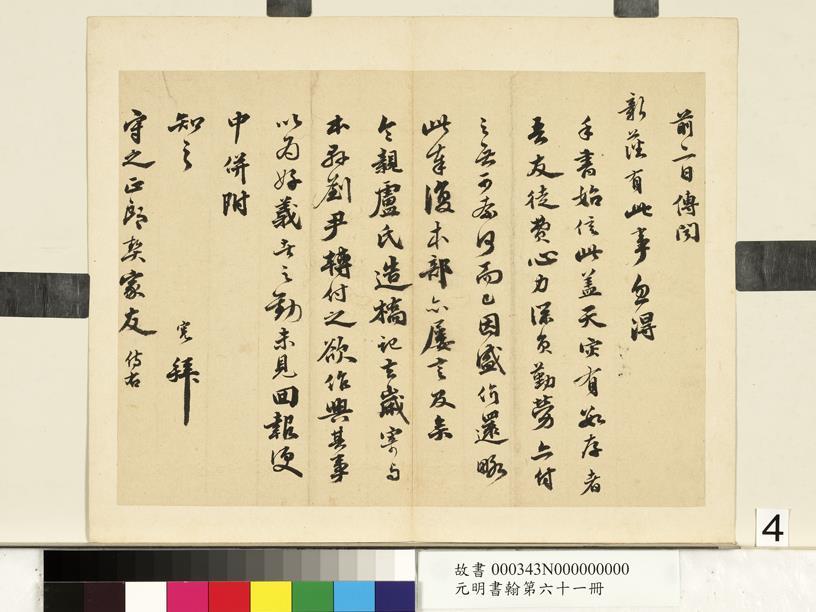 前二日傳聞
新菴有此事忽得
手書始信此蓋天實有數存者
吾友徒費心力深負勤勞亦付
之無可奈何而已因盛价還略
此奉復本部亦屢言及余
令親盧氏造橋記去歲寄与
本縣劉尹轉付之欲作興其事
以為好義者之勸未見回報便
中併附
知之
寬拜
守之正郎契家友 侍右
4
故書 000343N000000000
元明書翰第六十一冊